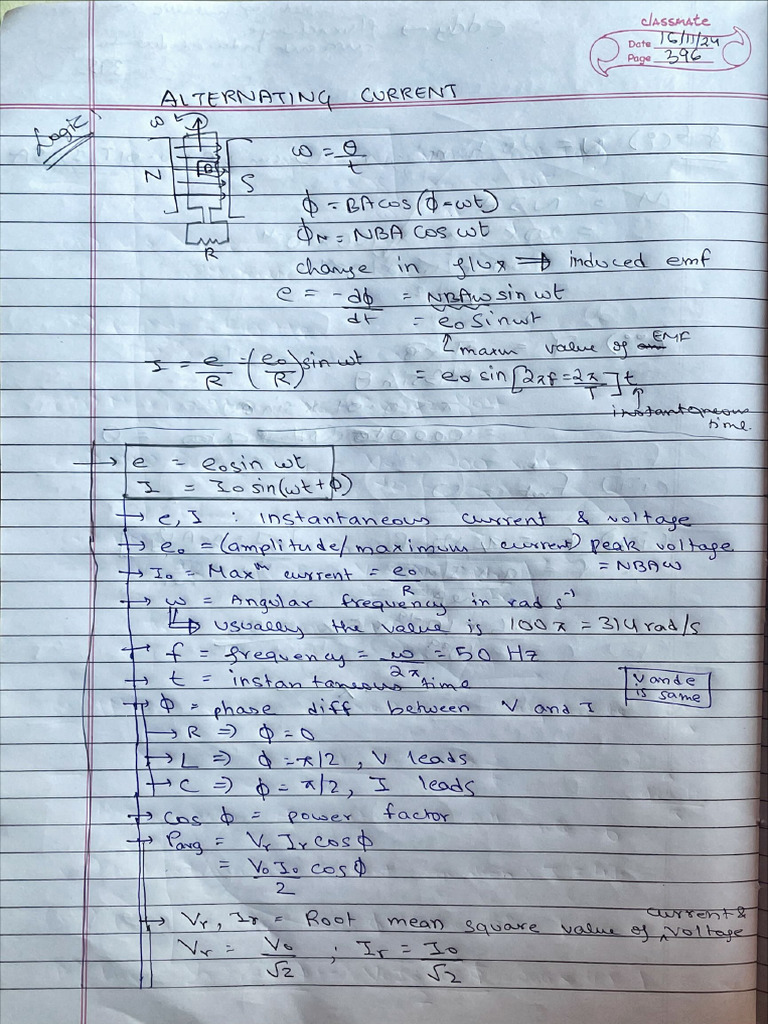 classmate
Date 16/11/24
Page 396
ALTERNATING CURRENT
Logic
ω
N
S
R
ω = θ/t
ϕ = BA cos(ϕ = ωt)
ϕN = NBA cos ωt
change in flux ⇒ induced emf
e = -dϕ/dt = NBAω sin ωt
= e₀ Sin ωt
↑ maxm value of EMF
I = e/R = (e₀/R) sin ωt
= e₀ sin [2πf = 2π/T] t
↑
instantaneous
time.
→ e = e₀ sin ωt
I = I₀ sin(ωt + ϕ)
→ e, I : instantaneous current & voltage
→ e₀ = (amplitude/maximum current) peak voltage
= NBAω
→ I₀ = Maxᵐ current = e₀/R
→ ω = Angular frequency in rad s⁻¹
↳ usually the value is 100π = 314 rad/s
→ f = frequency = ω/2π = 50 Hz
→ t = instantaneous time
V and e
is same
→ ϕ = phase diff between V and I
→ R ⇒ ϕ = 0
→ L ⇒ ϕ = π/2, V leads
→ C ⇒ ϕ = π/2, I leads
→ cos ϕ = power factor
→ Pavg = Vr Ir cos ϕ
= V₀ I₀/2 cos ϕ
→ Vr, Ir = Root mean square value of current & voltage
Vr = V₀/√2 ; Ir = I₀/√2